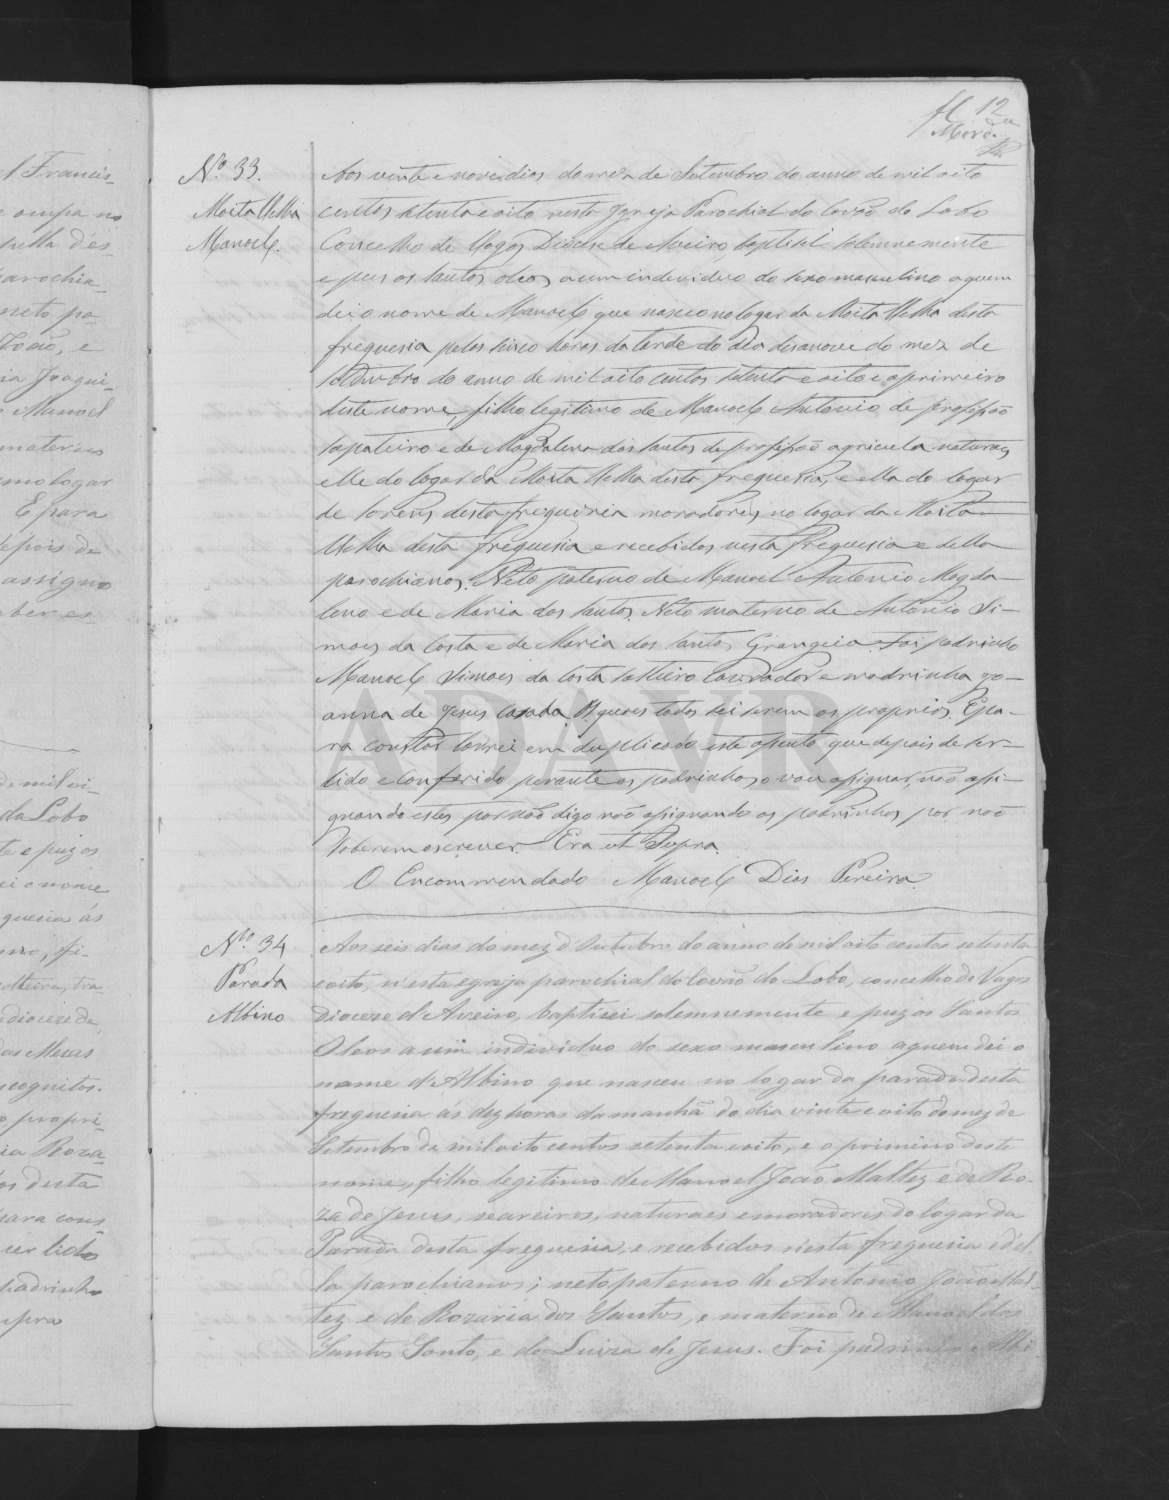 fl 12
N.º 33.
Moita Velha
Manoel.
Aos vinte e nove dias do mez de Setembro do anno de mil oito
centos setenta e oito nesta Igreja Parochial do Covão do Lobo
Concelho de Vagos Diocese de Aveiro, baptisei solemnemente
e puz os santos oleos a um individuo do sexo masculino a quem
dei o nome de Manoel que nasceo no logar da Moita Velha desta
freguesia pelas sinco horas da tarde do dia desanove do mez de
Setembro do anno de mil oito centos setenta e oito e o primeiro
deste nome, filho legitimo de Manoel Antonio de profissão
sapateiro e de Magdalena dos santos de profissão agricula naturaes
elle do logar da Moita Velha desta freguesia, e ella do logar
de desta freguesia moradores no logar da Moita
Velha desta freguesia e recebidos nesta freguesia e della
parochianos. Neto paterno de Manoel Antonio Magda-
leno e de Maria dos santos. Neto materno de Antonio Si-
moes da Costa e de Maria dos santos Grangeia. Foi padrinho
Manoel Simoes da Costa solteiro lavrador e madrinha Jo-
anna de Jesus casada. Os quaes todos sei serem os proprios. E pa-
ra constar lavrei em duplicado este assento que depois de ser
lido e conferido perante os padrinhos o vou assignar, não assi-
gnando estes por não digo não assignando os padrinhos por não
saberem escrever. Era ut Supra.
O Encommendado Manoel Dias Pereira.
N.º 34
Parada
Albino
Aos seis dias do mez d'Outubro do anno de mil oito centos setenta
e oito, n'esta egreja parochial do Covão do Lobo, concelho de Vagos
Diocese d'Aveiro, baptisei solemnemente e puz os Santos
Oleos a um individuo do sexo masculino a quem dei o
nome d'Albino que nasceu no logar da parada desta
freguesia ás dez horas da manhã do dia vinte e oito do mez de
Setembro de mil oito centos setenta e oito, e o primeiro deste
nome, filho legitimo de Manoel João Maltez e de Ro-
za de Jesus, seareiros, naturaes e moradores do logar da
Parada desta freguesia, e recebidos n'esta freguesia e d'el-
la parochianos; neto paterno de Antonio João Mal-
tez e de Rozaria dos Santos, e materno de Manoel dos
Santos Souto, e de Luiza de Jesus. Foi padrinho Albi
l Francis-
e ocupa no
pella d'es-
parochia-
neto pa-
João, e
ia Joaqui-
Manoel
maternos
mo logar
E para
depois de
assigno
de mil oi-
do Lobo
te e puz os
ei o nome
guesia ás
mo, fi-
olteira, tra-
diocese de
das Mexas
cognitos.
o propri-
ia Roza-
os desta
para cons-
ser lido
padrinho
upra
ADAVR